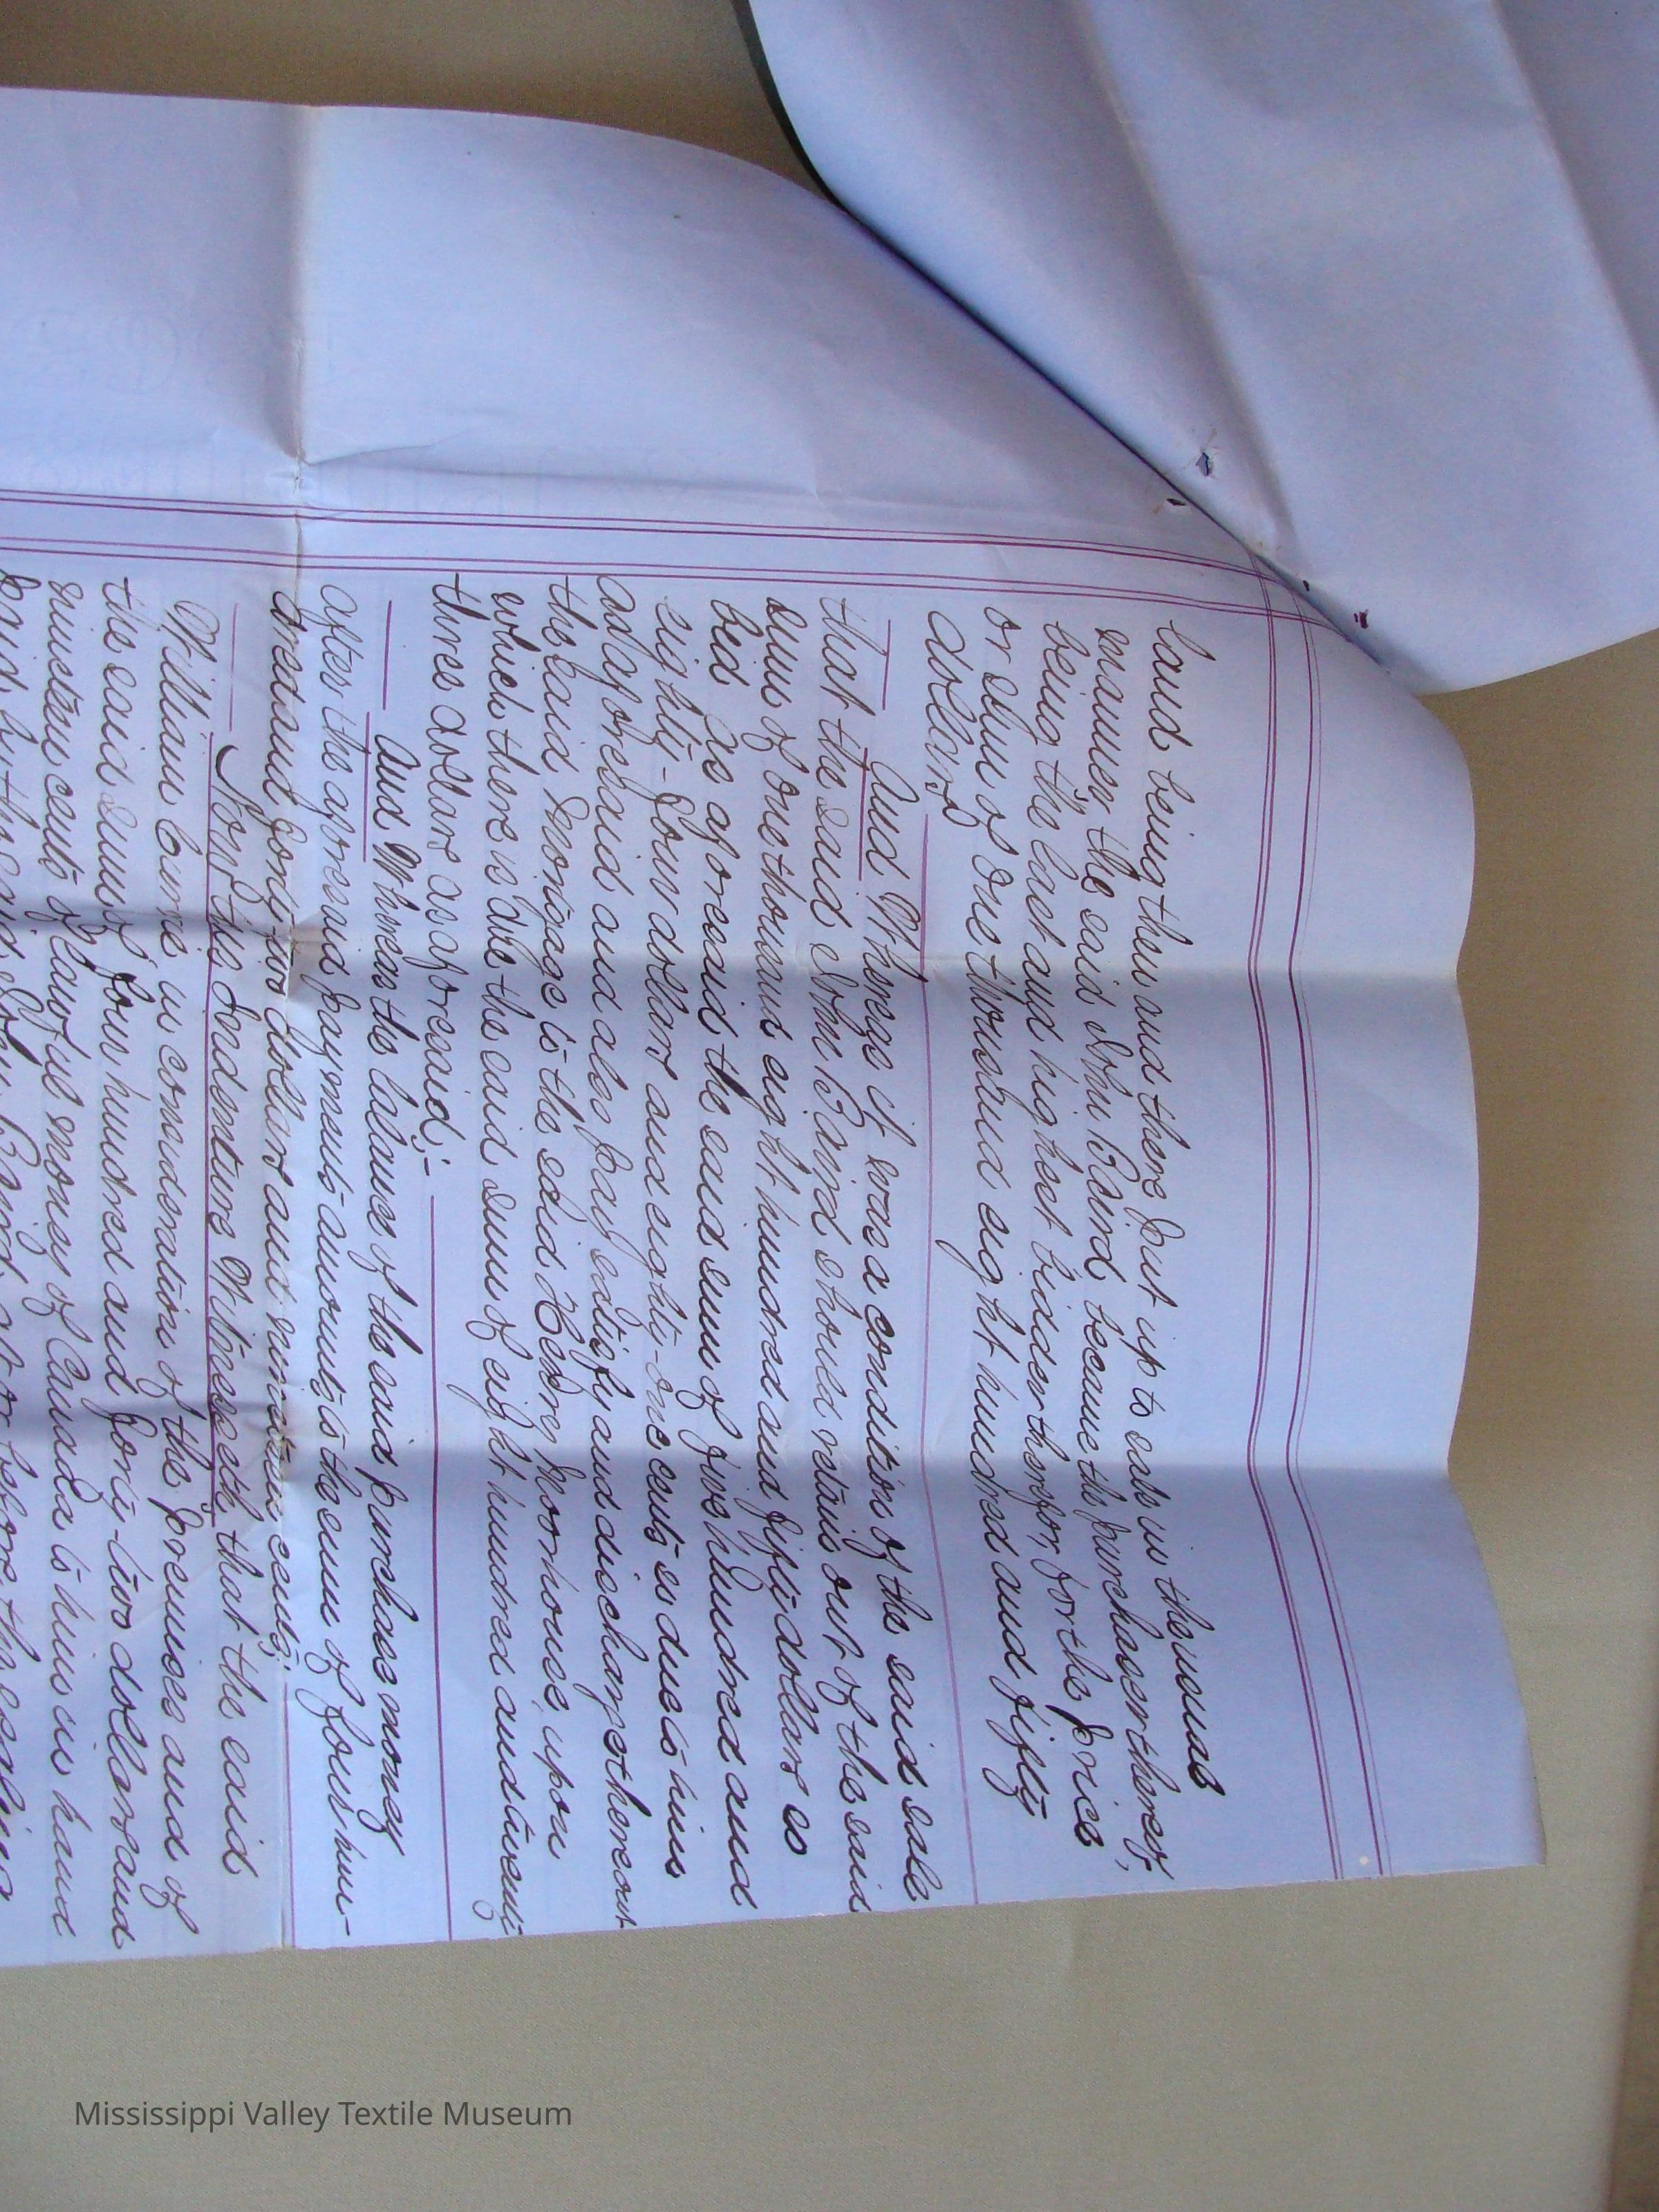 land being then and there put up to sale in the usual
manner, the said John Baird became the purchaser thereof,
being the last and highest bidder therefor, for the price
or sum of One thousand eight hundred and fifty
dollars
And Whereas it was a condition of the said sale
that the said John Baird should retain out of the said
sum of One thousand eight hundred and fifty dollars so
bid as aforesaid the said sum of five hundred and
eighty-four dollars and eighty-one cents so due to him
as aforesaid and also pay satisfy and discharge thereout
the said Mortgage to the said Henry Moorhouse, upon
which there is due the said sum of eight hundred and twenty
three dollars as aforesaid;-
And Whereas the balance of the said purchase money
after the aforesaid payments amounts to the sum of four hun-
dred and forty two dollars and nineteen cents;
Now this Indenture Witnesseth that the said
William in consideration of the premises and of
the said sum of four hundred and forty-two dollars and
nineteen cents of lawful money of Canada to him in hand
paid by the said John Baird at or before the sealing
Mississippi Valley Textile Museum